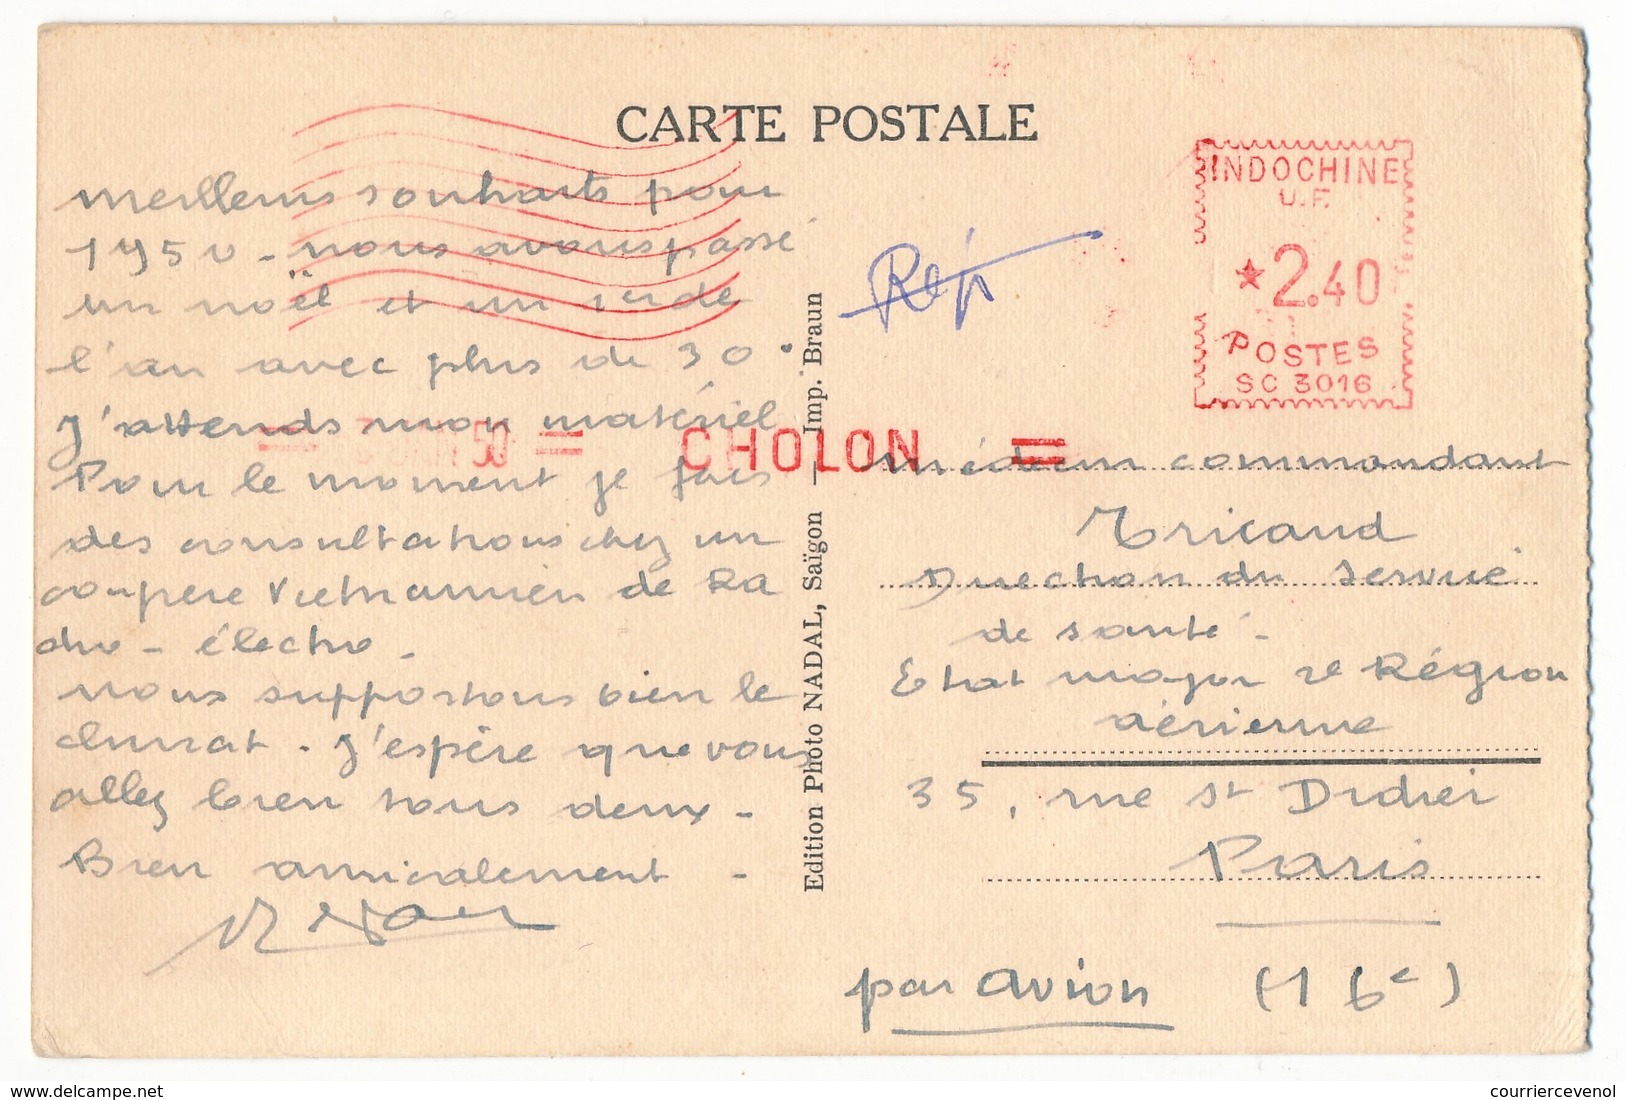 CARTE POSTALE
meilleurs souhaits pour
1950 - nous avons passé
un noël et un 1er de
l'an avec plus de 30°
J'attends mon matériel
Pour le moment je fais
des consultations chez un
confrère Vietnamien de Ra
dio - électro -
nous supportons bien le
climat . J'espère que vous
allez bien tous deux -
Bien amicalement -
Edition Photo NADAL, Saïgon — Imp. Braun
Rep
INDOCHINE
U.F.
*2.40
POSTES
SC 3016
50 = CHOLON =
médecin commandant
Tricaud
Direction du Service
de santé -
Etat major 2e Région
aérienne
35, rue St Didier
Paris
par avion (16e)
courriercevenol